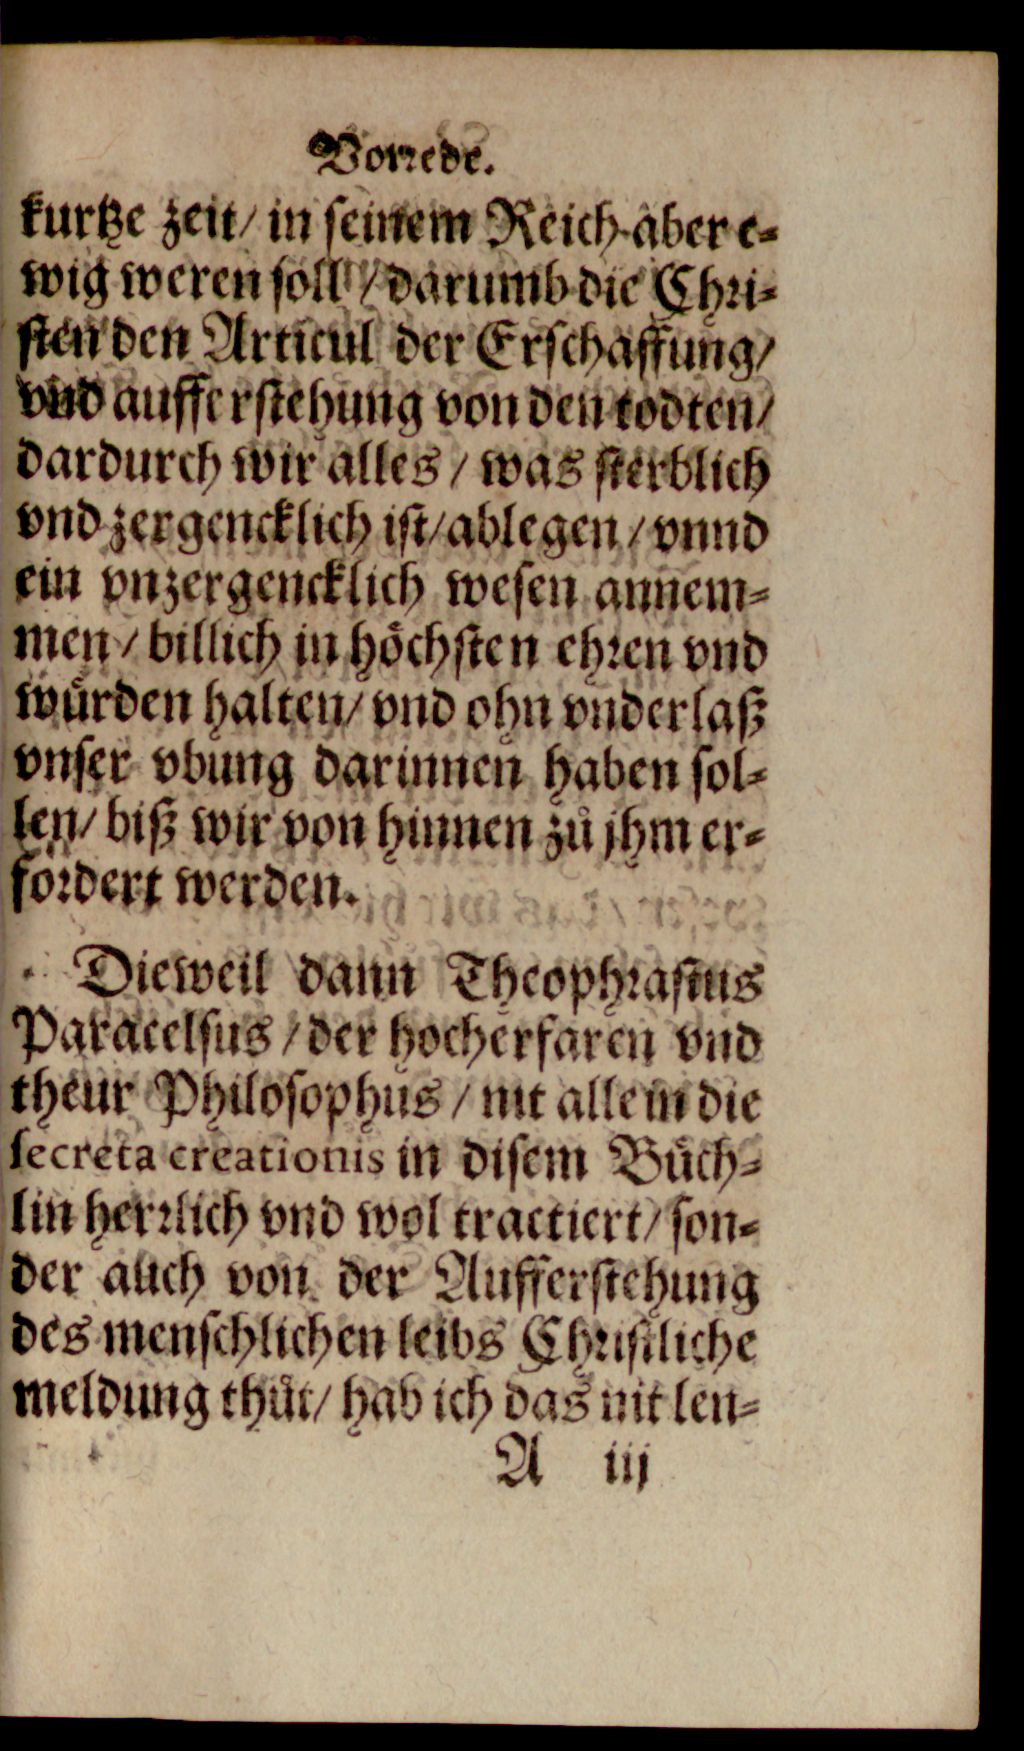 Vorrede.
kurtze zeit/ in seinem Reich aber e-
wig weren soll / darumb die Chri-
sten den Articul der Erschaffung/
vnd aufferstehung von den todten/
dardurch wir alles / was sterblich
vnd zergencklich ist/ ablegen / vnnd
ein vnzergencklich wesen annem-
men / billich in hoͤchsten ehren vnd
wuͤrden halten/ vnd ohn vnderlaß
vnser vbung darinnen haben sol-
len/ biß wir von hinnen zuͦ jhm er-
fordert werden.
Dieweil dann Theophrastus
Paracelsus / der hocherfaren vnd
theur Philosophus / nit allein die
secreta creationis in disem Buͤch-
lin herrlich vnd wol tractiert/ son-
der auch von der Aufferstehung
des menschlichen leibs Christliche
meldung thuͦt/ hab ich das nit len-
A iij